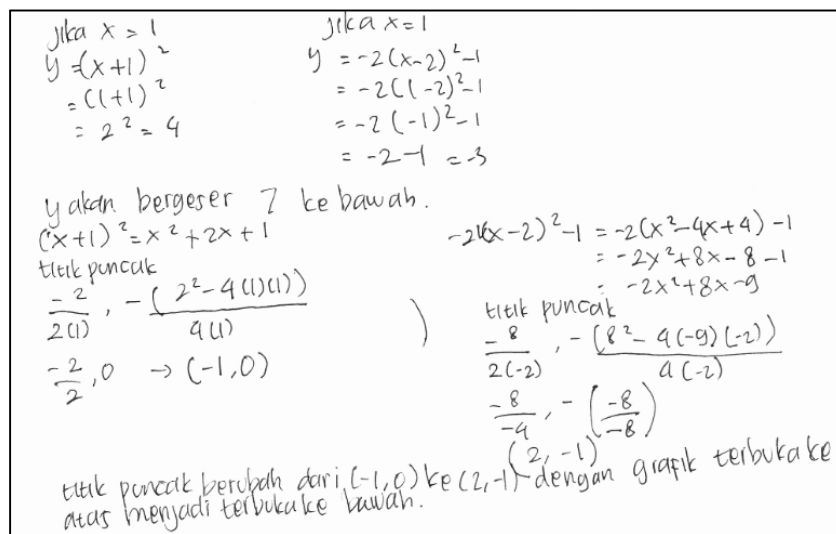 jika x = 1
y = (x+1)²
= (1+1)²
= 2² = 4
jika x = 1
y = -2(x-2)² -1
= -2(1-2)² -1
= -2(-1)² -1
= -2 -1 = -3
y akan bergeser 7 ke bawah.
(x+1)² = x² + 2x + 1
titik puncak
-2/2(1) , -(2² - 4(1)(1))/4(1)
-2/2 , 0 → (-1,0)
)
-2(x-2)² -1 = -2(x² -4x+4) -1
= -2x² + 8x - 8 - 1
= -2x² + 8x - 9
titik puncak
-8/2(-2) , -(8² - 4(-9)(-2))/4(-2)
-8/-4 , -(-8/-8)
(2, -1)
titik puncak berubah dari (-1,0) ke (2,-1) dengan grafik terbuka ke
atas menjadi terbuka ke bawah.